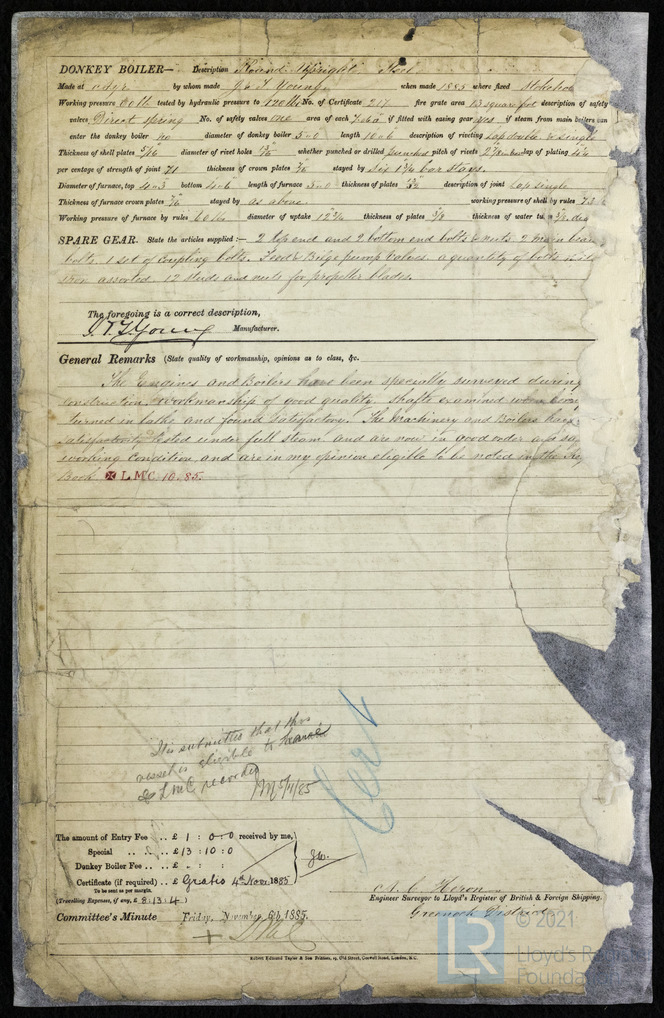 DONKEY BOILER— Description Round Upright Steel
Made at Ayr by whom made J & T Young when made 1885 where fixed Stokehold
Working pressure 60 lb tested by hydraulic pressure to 120 lb No. of Certificate 217 fire grate area 13 square foot description of safety
valves Direct spring No. of safety valves one area of each if fitted with easing gear yes if steam from main boilers can
enter the donkey boiler no diameter of donkey boiler 5-0 length 10-6 description of riveting Lap double & single
Thickness of shell plates 5/16 diameter of rivet holes whether punched or drilled punched pitch of rivets lap of plating
per centage of strength of joint 71 thickness of crown plates 7/16 stayed by six bar stays.
Diameter of furnace, top 4-3 bottom 4-6 length of furnace thickness of plates description of joint Lap single
Thickness of furnace crown plates 7/16 stayed by as above working pressure of shell by rules 73
Working pressure of furnace by rules 60 lb diameter of uptake thickness of plates 3/8 thickness of water tu
SPARE GEAR. State the articles supplied:— 2 top end and 2 bottom end bolts & nuts. 2 main bear
bolts. 1 set of coupling bolts. Feed & Bilge pump valves. a quantity of bolts
iron assorted. 12 studs and nuts for propeller blades.
The foregoing is a correct description,
J. & T. Young Manufacturer.
General Remarks (State quality of workmanship, opinions as to class, &c.
The Engines and Boilers have been specially surveyed during
construction. Workmanship of good quality. Shafts examined when being
turned in lathe and found satisfactory. The Machinery and Boilers have
satisfactorily tested under full steam and are now in good order & sa
working condition and are in my opinion eligible to be noted in the Re
Book L.M.C. 10. 85.
It is submitted that this
vessel is eligible to have
LMC recorded
Cert
The amount of Entry Fee .. £ 1 : 0 : 0 received by me,
Special .. .. £ 13 : 10 : 0
Donkey Boiler Fee .. £ : :
Certificate (if required) .. £ Gratis 4th Nov. 1885
To be sent as per margin.
(Travelling Expenses, if any, £ 8 : 13 : 4)
A. C. Heron
Engineer Surveyor to Lloyd's Register of British & Foreign Shipping.
Greenock District
Committee's Minute Friday, November 6th, 1885.
Robert Edmund Taylor & Son Printers, 19, Old Street, Goswell Road, London, E.C.
LR
© 2021
Lloyd's R
Founda